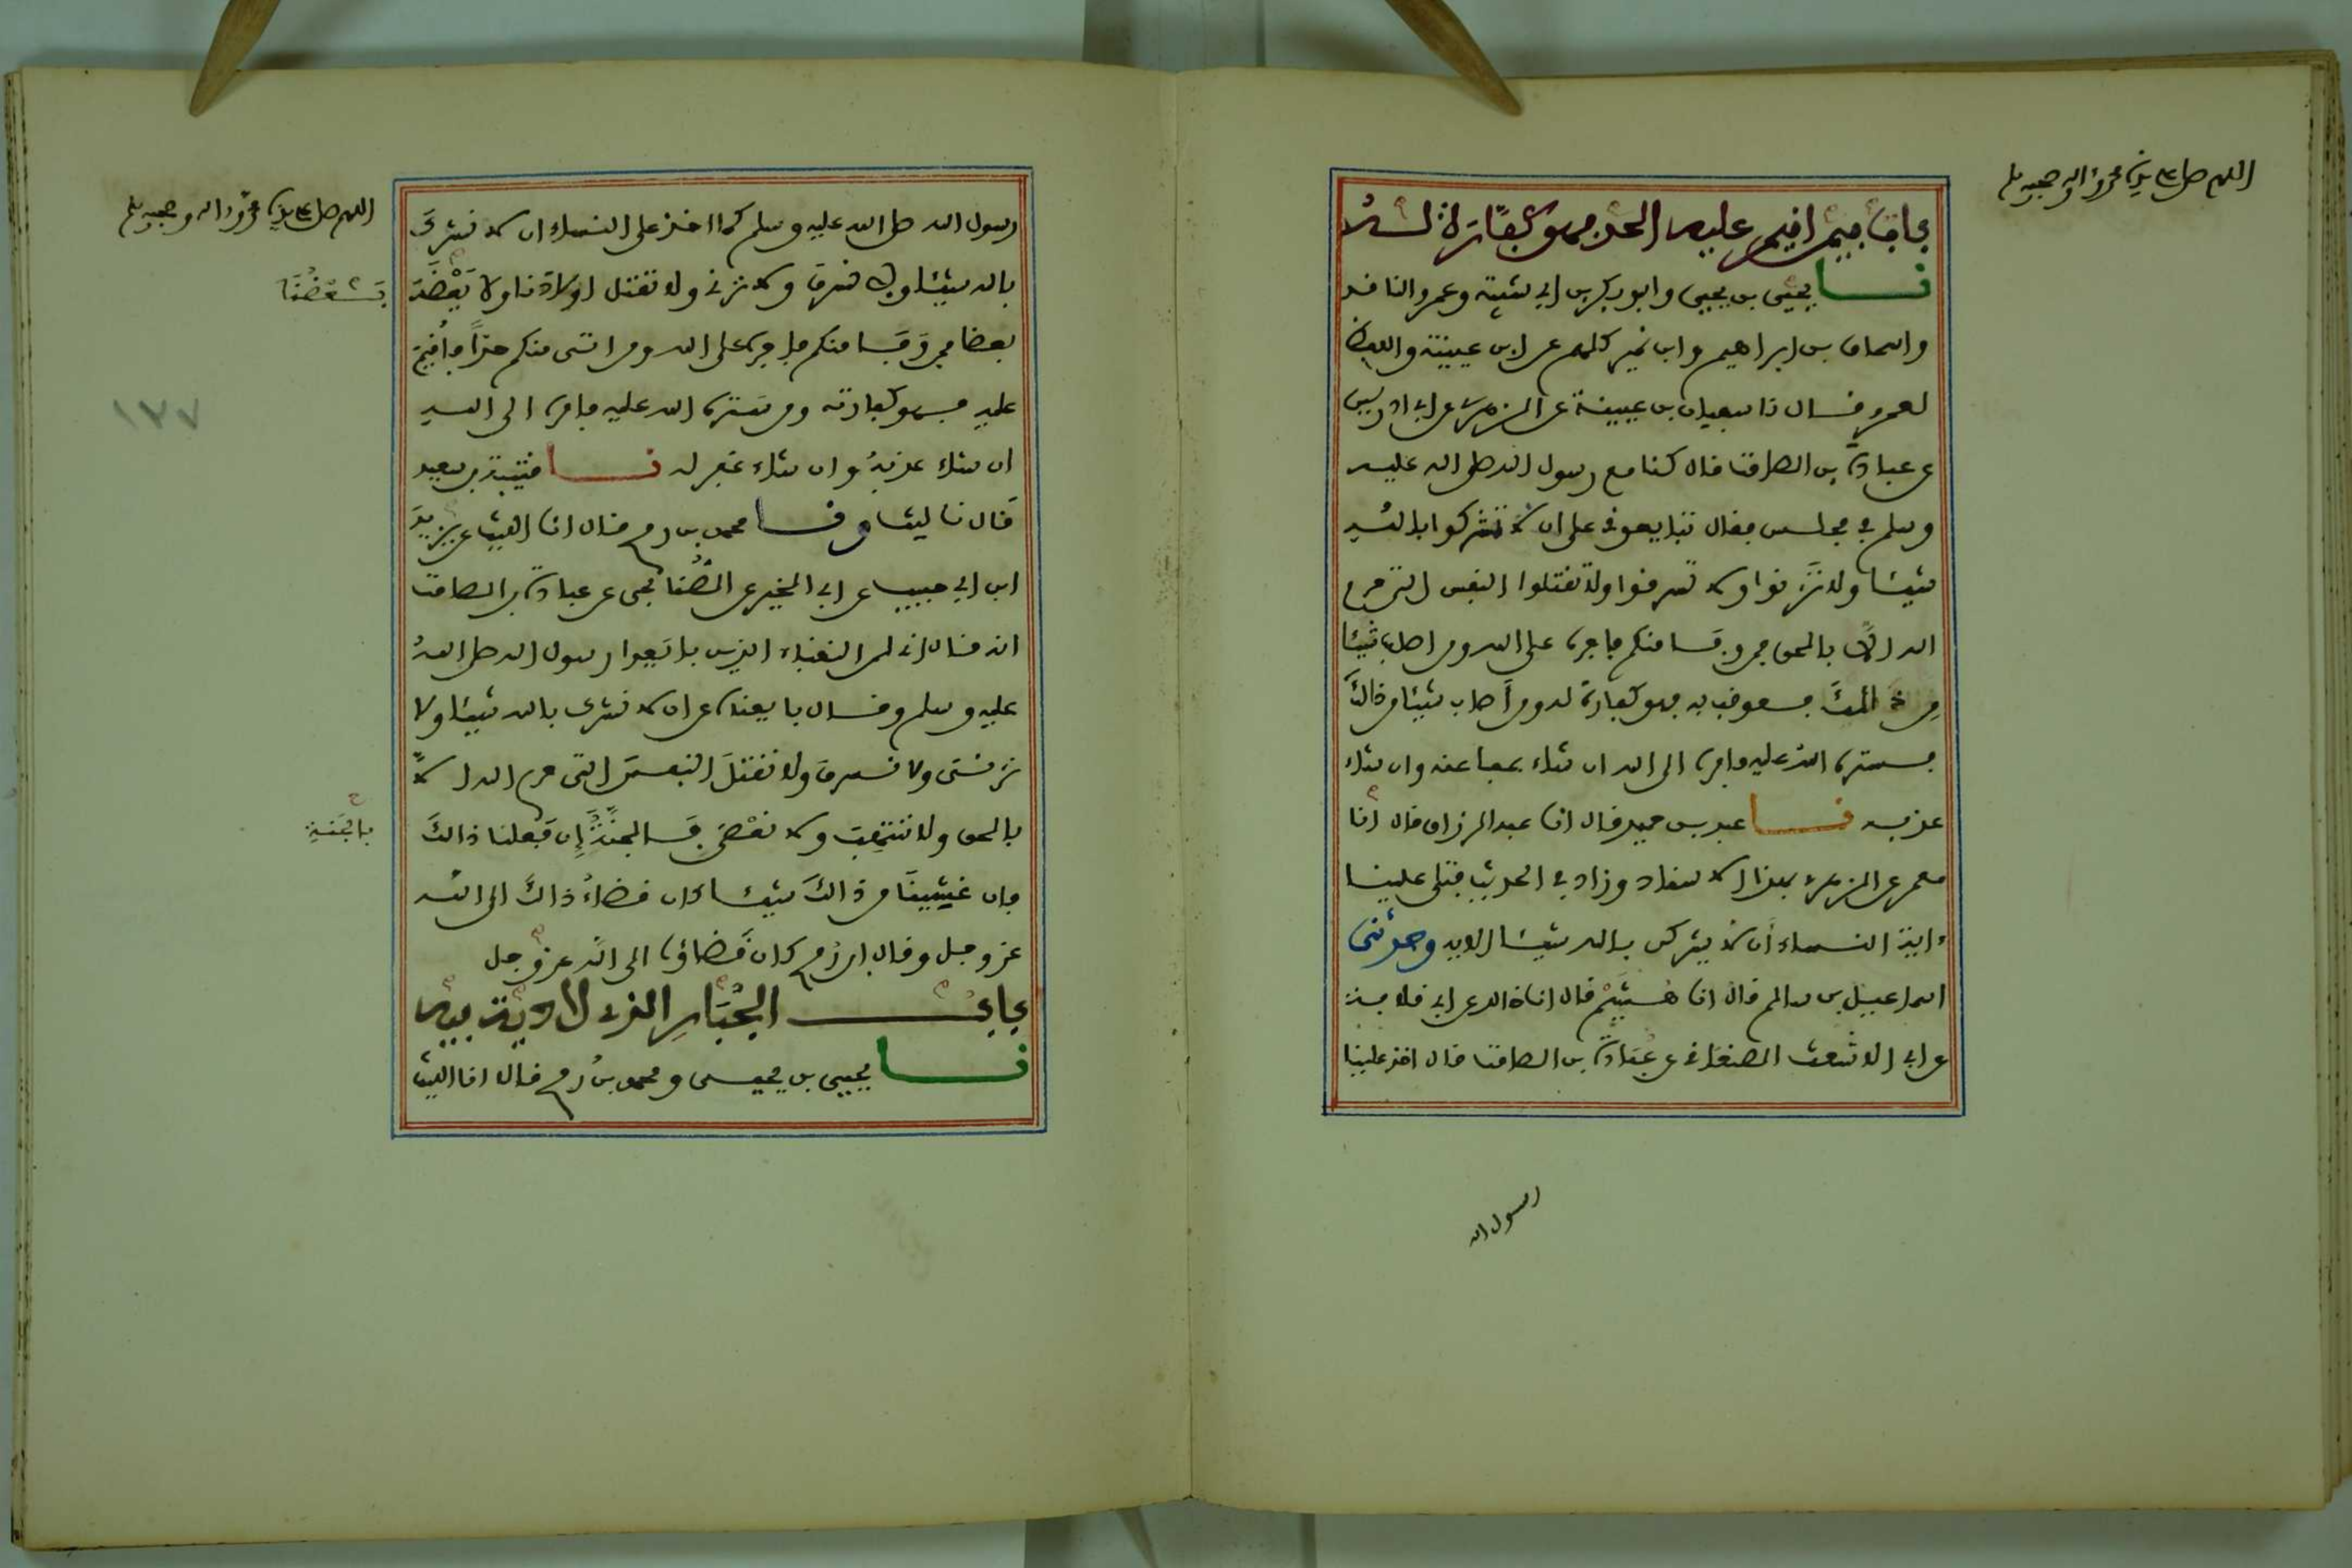 اللهم صل على سيدنا محمد وءاله وصحبه وسلم
باب فيمن اقيم عليه الحد فهو كفارة له
نا يحيى بن يحيى وابو بكر بن ابي شيبة وعمرو الناقد
واسحاق بن ابراهيم وابن نمير كلهم عن ابن عيينة واللفظ
لعمرو قال نا سفيان بن عيينة عن الزهري عن ابي ادريس
عن عبادة بن الصامت قال كنا مع رسول الله صلى الله عليه
وسلم في مجلس فقال تبايعوني على ان لا تشركوا بالله
شيئا ولا تزنوا ولا تسرقوا ولا تقتلوا النفس التي حرم
الله الا بالحق فمن وفى منكم فاجره على الله ومن اصاب شيئا
من ذالك فعوقب به فهو كفارة له ومن أصاب شيئا من ذالك
فستره الله عليه فامره الى الله ان شاء عفا عنه وان شاء
عذبه نا عبد بن حميد قال انا عبد الرزاق قال انا
معمر عن الزهري بهذا الاسناد وزاد في الحديث فتلى علينا
ءاية النساء أن لا يشركن بالله شيئا الاية وحدثني
اسماعيل بن سالم قال انا هشيم قال انا خالد عن ابي قلابة
عن ابي الاشعث الصنعاني عن عبادة بن الصامت قال اخذ علينا
رسول الله
اللهم صل على سيدنا محمد وءاله وصحبه وسلم
رسول الله صلى الله عليه وسلم كما اخذ على النساء ان لا نشرك
بالله شيئا ولا نسرق ولا نزني ولا نقتل اولادنا ولا يعضه
بعضنا
بعضا فمن وفى منكم فاجره على الله ومن اتى منكم حدا فأقيم
عليه فهو كفارته ومن ستره الله عليه فامره الى الله
ان شاء عذبه وان شاء غفر له نا قتيبة بن سعيد
١٢٧
قال نا ليث ونا محمد بن رمح قال انا الليث عن يزيد
ابن ابي حبيب عن ابي الخير عن الصنابحي عن عبادة بن الصامت
انه قال اني لمن النقباء الذين بايعوا رسول الله صلى الله
عليه وسلم وقال بايعناه على ان لا نشرك بالله شيئا ولا
نزني ولا نسرق ولا نقتل النفس التي حرم الله الا
بالحق ولا ننتهب ولا نعصي فالجنة إن فعلنا ذالك
بالجنة
فان غشينا من ذالك شيئا كان قضاء ذالك الى الله
عز وجل وقال ابن رمح كان قضاؤه الى الله عز وجل
باب الجبار الذي لا دية فيه
نا يحيى بن يحيى ومحمد بن رمح قالا انا الليث